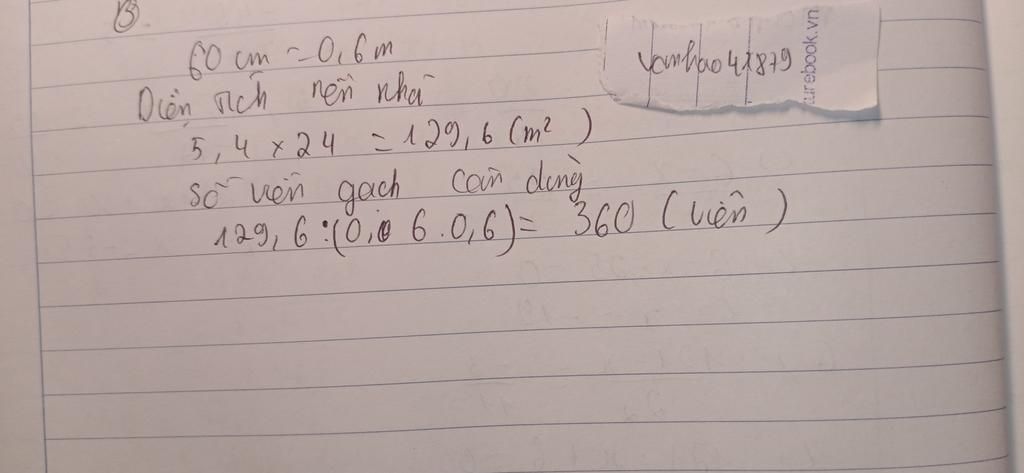 B.
60 cm = 0,6 m
Diện tích nền nhà
5,4 × 24 = 129,6 (m²)
số viên gạch cần dùng
129,6 : (0,6 . 0,6) = 360 (viên)
Vanhao41879
urebook.vn